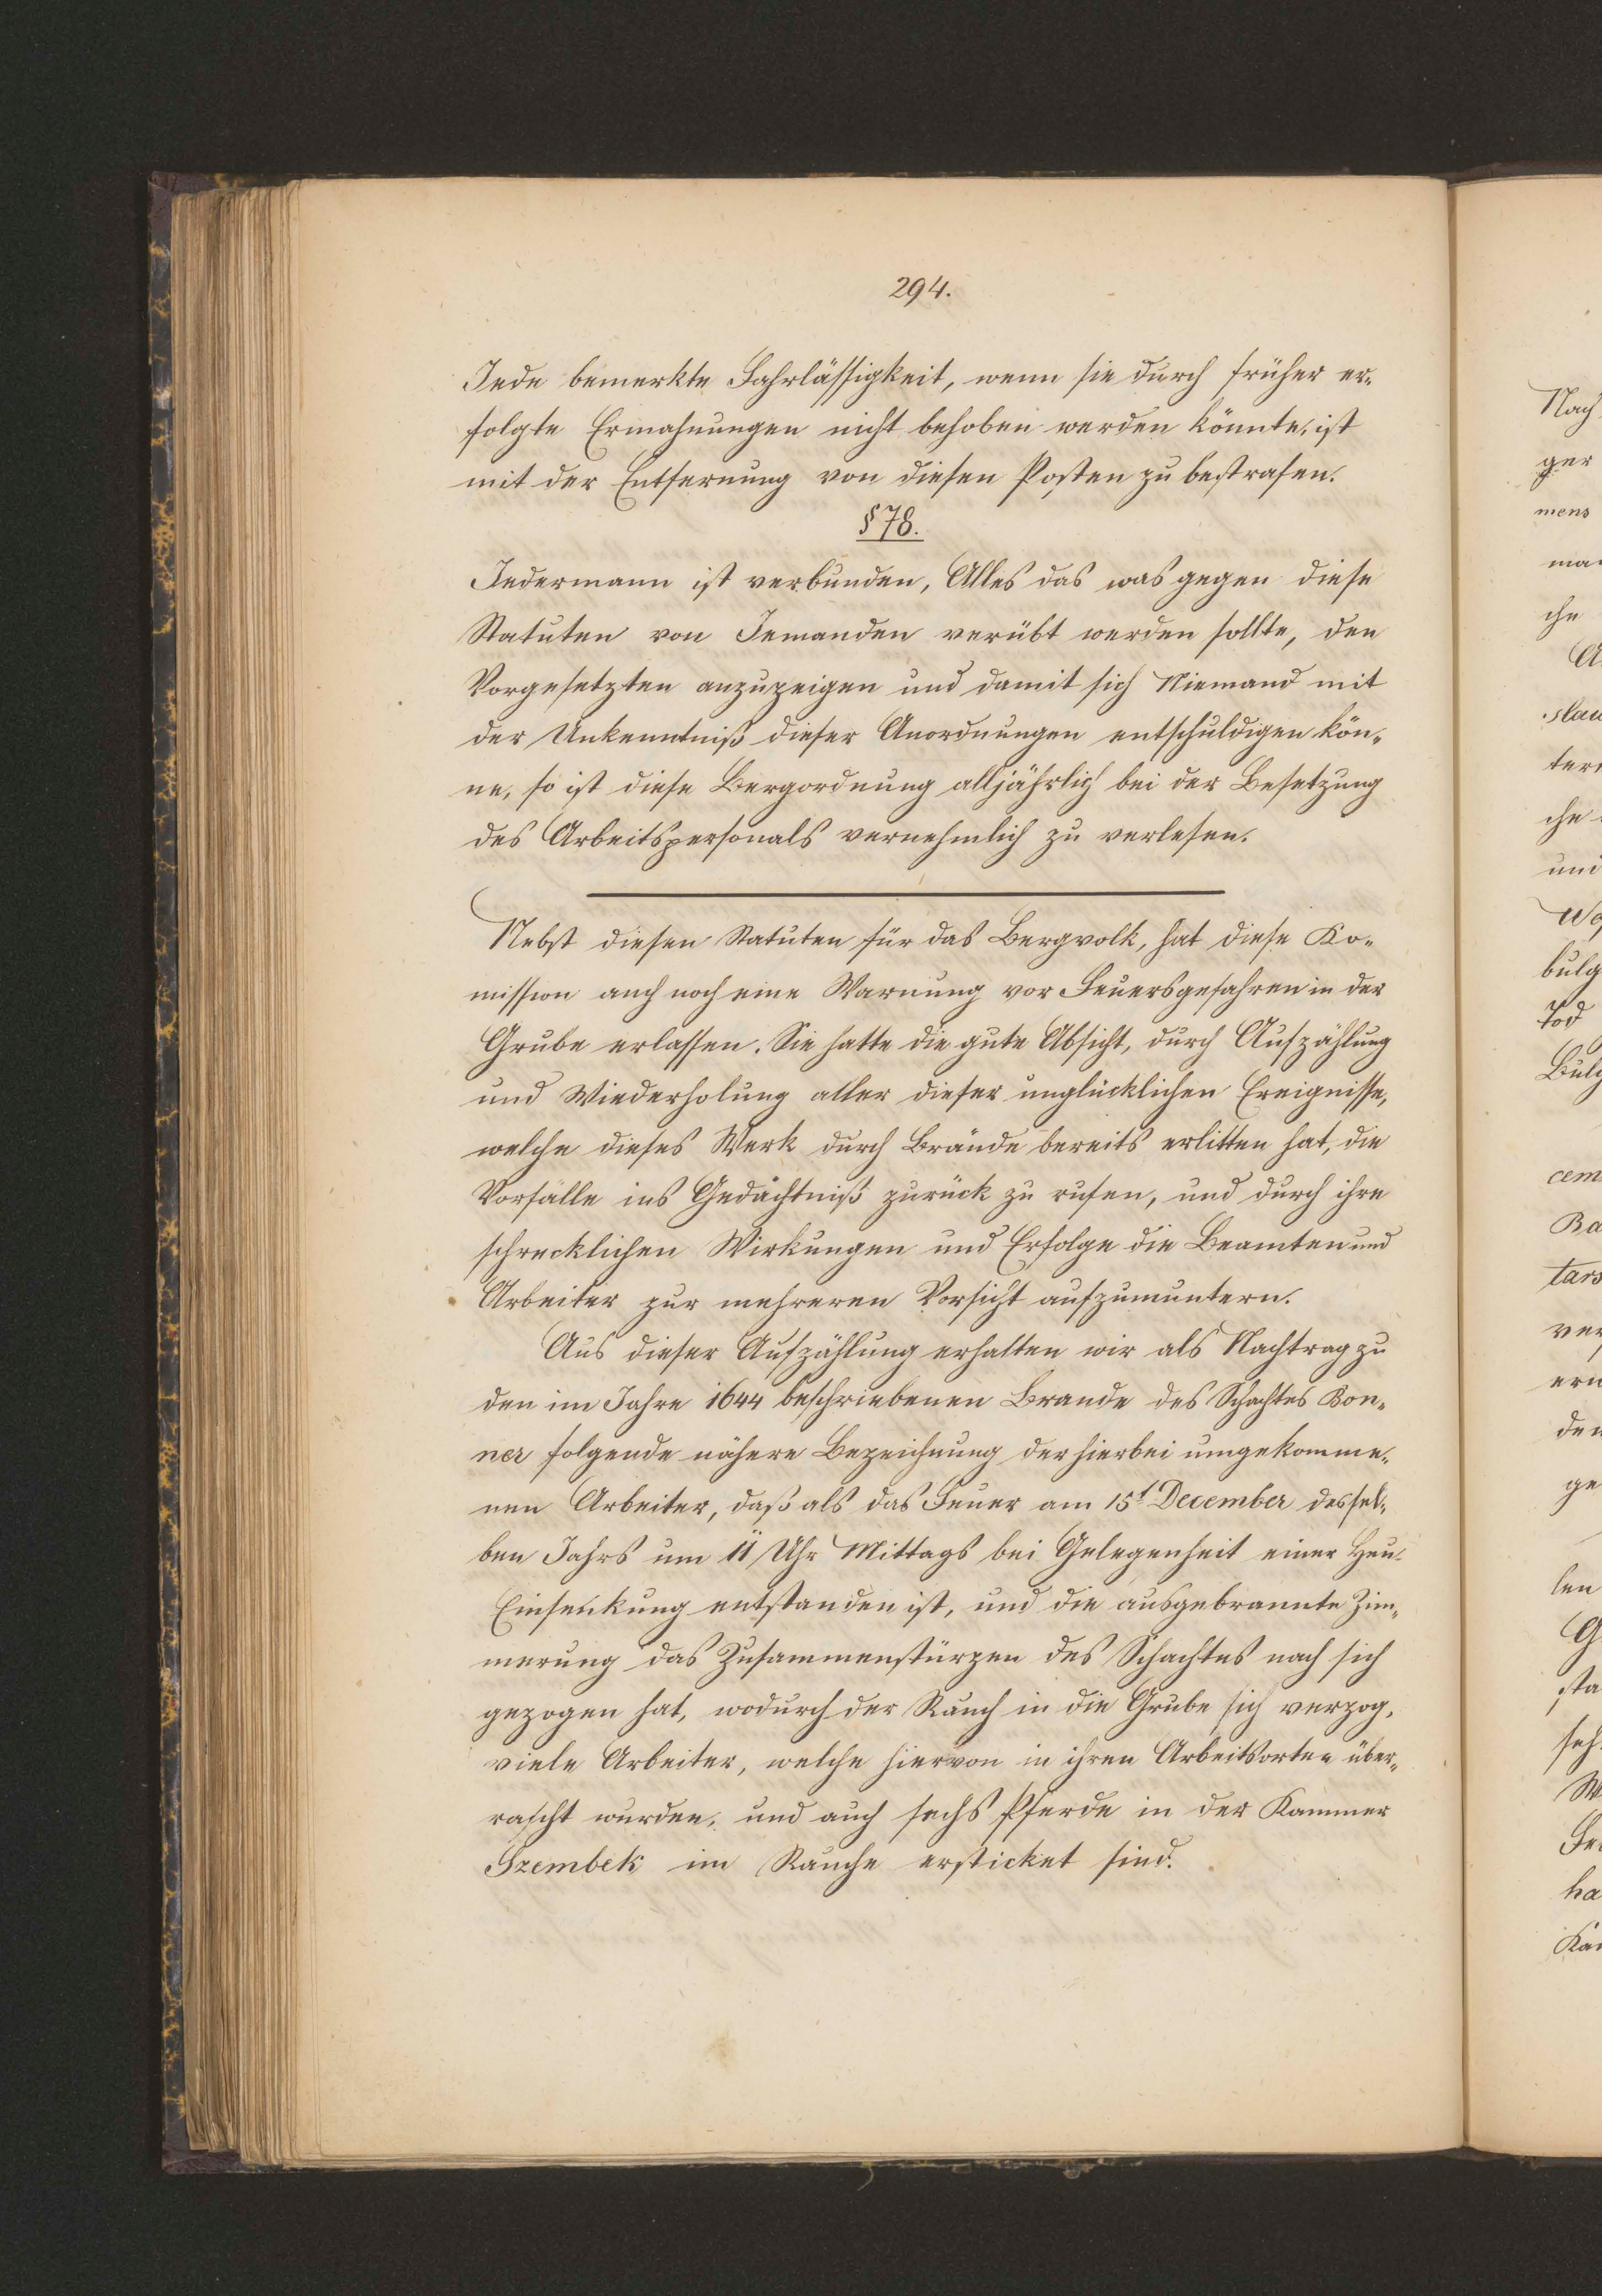 294.
Jede bemerkte Fahrlässigkeit, wenn sie durch früher er-
folgte Ermahnungen nicht behoben werden könnte, ist
mit der Entfernung von diesen Posten zu bestrafen.
§ 78.
Jedermann ist verbunden, Alles das was gegen diese
Statuten von Jemanden verübt werden sollte, den
Vorgesetzten anzuzeigen und damit sich Niemand mit
der Unkenntniß dieser Anordnungen entschuldigen kön-
ne, so ist diese Bergordnung alljährlich bei der Besetzung
des Arbeitspersonals vernehmlich zu verlesen.
Nebst diesen Statuten für das Bergvolk, hat diese Ko-
mission auch noch eine Warnung vor Feuersgefahren in der
Grube erlassen. Sie hatte die gute Absicht, durch Aufzählung
und Wiederholung aller dieser unglücklichen Ereignisse,
welche dieses Werk durch Brände bereits erlitten hat, die
Vorfälle ins Gedächtniß zurück zu rufen, und durch ihre
schrecklichen Wirkungen und Erfolge die Beamten und
Arbeiter zur mehreren Vorsicht aufzumuntern.
Aus dieser Aufzählung erhalten wir als Nachtrag zu
den im Jahre 1644 beschriebenen Brande des Schachtes Bon-
ner folgende nähere Bezeichnung der hierbei umgekomme-
nen Arbeiter, daß als das Feuer am 15t December dessel-
ben Jahrs um 11 Uhr Mittags bei Gelegenheit einer Heu-
Einsenkung entstanden ist, und die ausgebrannte Zim-
merung das Zusammenstürzen des Schachtes nach sich
gezogen hat, wodurch der Rauch in die Grube sich verzog,
viele Arbeiter, welche hiervon in ihren Arbeitsorten über-
rascht wurden, und auch sechs Pferde in der Kammer
Szembek im Rauche ersticket sind.